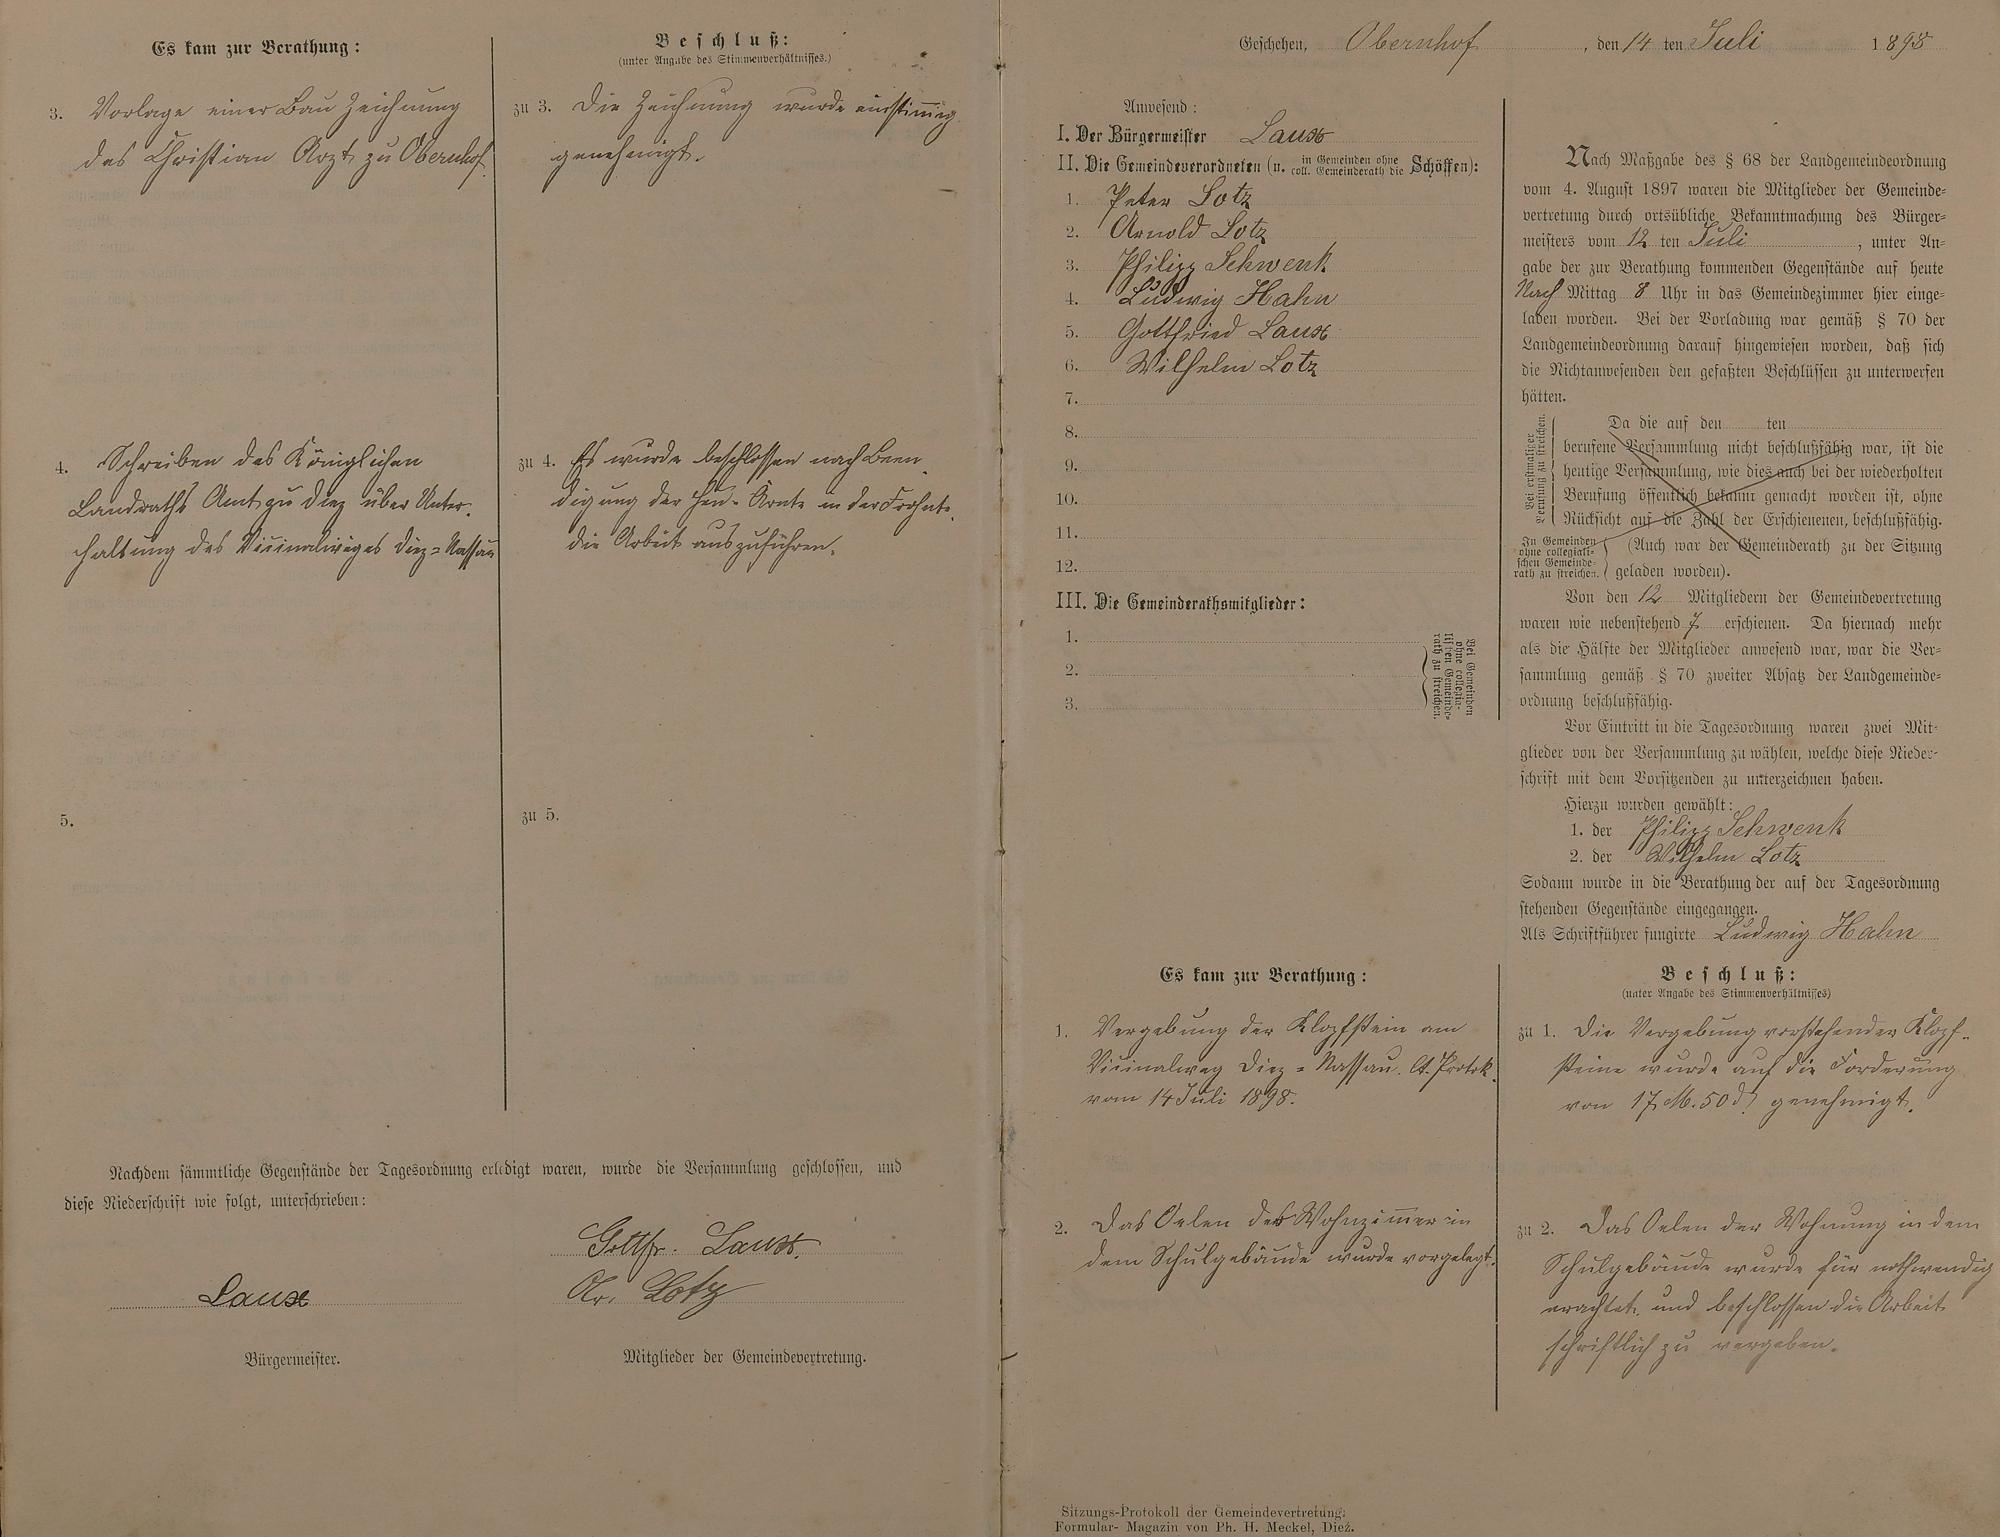 Es kam zur Berathung:
Beschluß:
(unter Angabe des Stimmenverhältnisses.)
3. Vorlage einer Bau Zeichnung
des Christian Arzt zu Obernhof.
zu 3. Die Zeichnung wurde einstimig
genehmigt.
4. Schreiben des Königlichen
Landraths Amt zu Diez über Unter-
haltung des Vicinalweges Diez-Nassau
zu 4. Es wurde beschlossen nach Been-
digung der Heu-Ernte in der Frohnte
die Arbeit auszuführen.
5.
zu 5.
Nachdem sämmtliche Gegenstände der Tagesordnung erledigt waren, wurde die Versammlung geschlossen, und
diese Niederschrift wie folgt, unterschrieben:
Gottfr. Laux.
Laux
Ar. Lotz
Bürgermeister.
Mitglieder der Gemeindevertretung.
Geschehen, Obernhof, den 14 ten Juli 1898
Anwesend:
I. Der Bürgermeister Laux
II. Die Gemeindeverordneten (u. in Gemeinden ohne coll. Gemeinderath die Schöffen):
1. Peter Lotz
2. Arnold Lotz
3. Philipp Schwenk
4. Ludwig Hahn
5. Gottfried Laux
6. Wilhelm Lotz
7.
8.
9.
10.
11.
12.
III. Die Gemeinderathsmitglieder:
1.
2.
3.
Bei Gemeinden
ohne collegia-
lischen Gemeinde-
rath zu streichen.
Nach Maßgabe des § 68 der Landgemeindeordnung
vom 4. August 1897 waren die Mitglieder der Gemeinde-
vertretung durch ortsübliche Bekanntmachung des Bürger-
meisters vom 12 ten Juli, unter An-
gabe der zur Berathung kommenden Gegenstände auf heute
Nach Mittag 8 Uhr in das Gemeindezimmer hier einge-
laden worden. Bei der Vorladung war gemäß § 70 der
Landgemeindeordnung darauf hingewiesen worden, daß sich
die Nichtanwesenden den gefaßten Beschlüssen zu unterwerfen
hätten.
Bei erstmaliger
Berufung zu streichen.
Da die auf den ten
berufene Versammlung nicht beschlußfähig war, ist die
heutige Versammlung, wie dies auch bei der wiederholten
Berufung öffentlich bekannt gemacht worden ist, ohne
Rücksicht auf die Zahl der Erschienenen, beschlußfähig.
In Gemeinden
ohne collegiali-
schen Gemeinde-
rath zu streichen.
(Auch war der Gemeinderath zu der Sitzung
geladen worden).
Von den 12 Mitgliedern der Gemeindevertretung
waren wie nebenstehend 7 erschienen. Da hiernach mehr
als die Hälfte der Mitglieder anwesend war, war die Ver-
sammlung gemäß § 70 zweiter Absatz der Landgemeinde-
ordnung beschlußfähig.
Vor Eintritt in die Tagesordnung waren zwei Mit-
glieder von der Versammlung zu wählen, welche diese Nieder-
schrift mit dem Vorsitzenden zu unterzeichnen haben.
Hierzu wurden gewählt:
1. der Philipp Schwenk
2. der Wilhelm Lotz
Sodann wurde in die Berathung der auf der Tagesordnung
stehenden Gegenstände eingegangen.
Als Schriftführer fungirte Ludwig Hahn
Es kam zur Berathung:
Beschluß:
(unter Angabe des Stimmenverhältnisses)
1. Vergebung der Klopfstein am
Vicinalweg Diez-Nassau. lt. Protok.
vom 14 Juli 1898.
zu 1. Die Vergebung vorstehender Klopf-
steine wurde auf die Forderung
von 17 M. 50 d. genehmigt.
2. Das Oelen des Wohnzimer in
dem Schulgebäude wurde vorgelegt.
zu 2. Das Oelen der Wohnung in dem
Schulgebäude wurde für nothwendig
erachtet und beschlossen die Arbeit
schriftlich zu vergeben.
Sitzungs-Protokoll der Gemeindevertretung.
Formular-Magazin von Ph. H. Meckel, Diez.